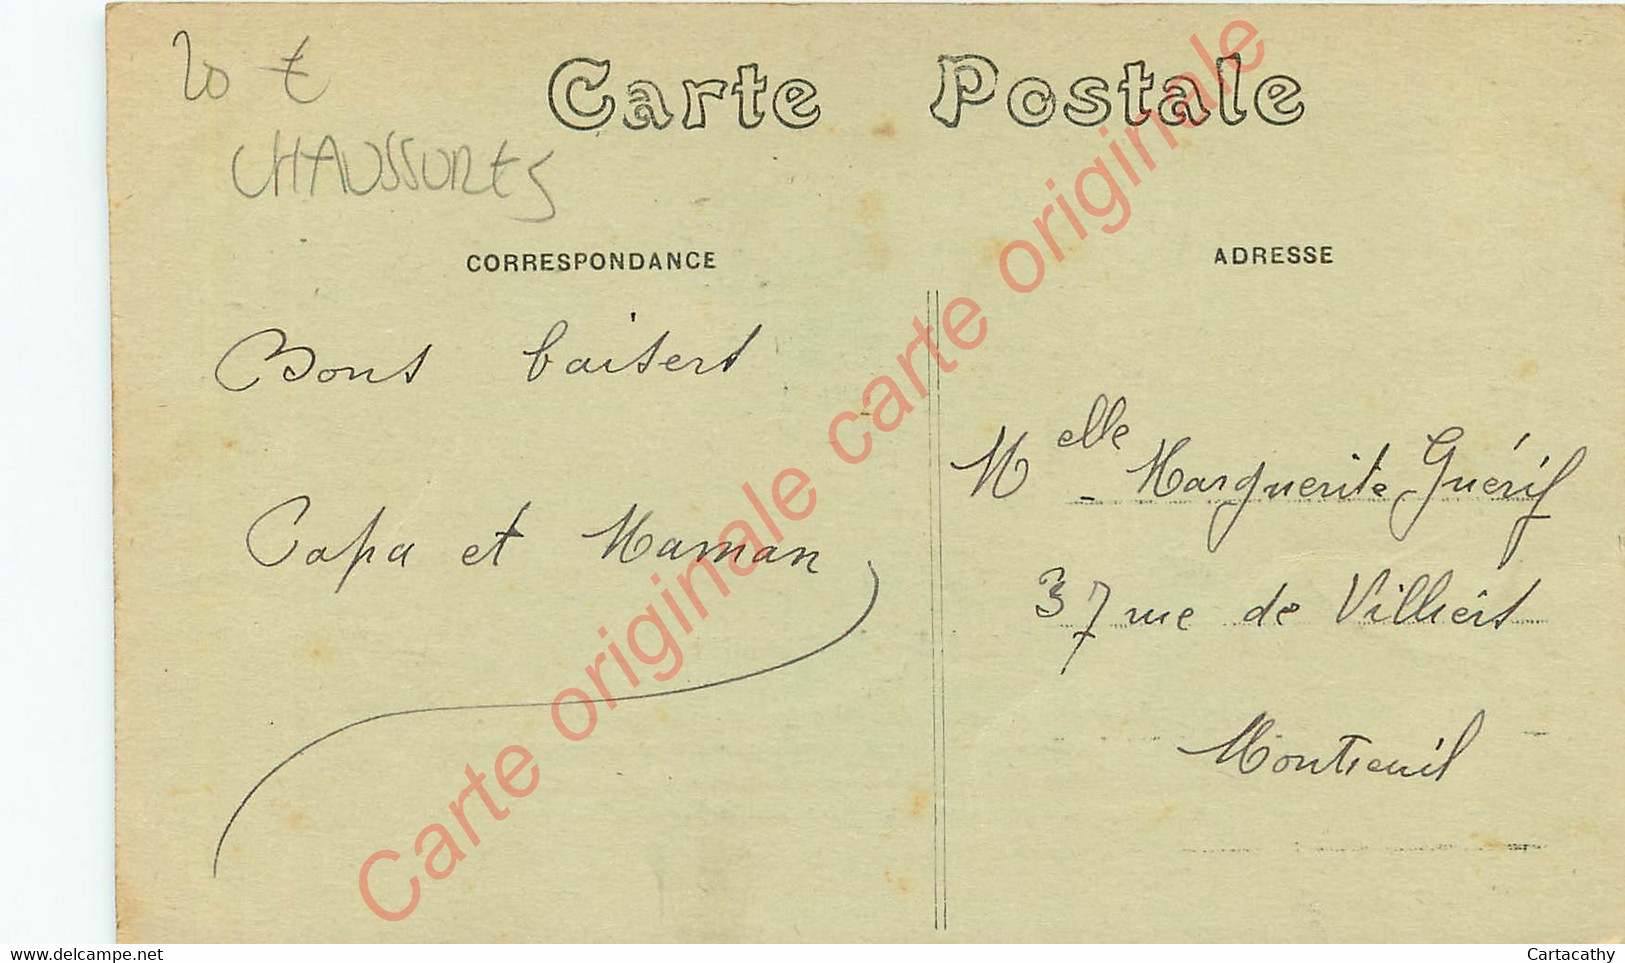 20 €
CHAUSSURES
Carte Postale
CORRESPONDANCE
Bons baisers
Papa et Maman
ADRESSE
Melle Marguerite Guérif
37 rue de Villiers
Montreuil
Carte originale carte originale
delcampe.net
Cartacathy